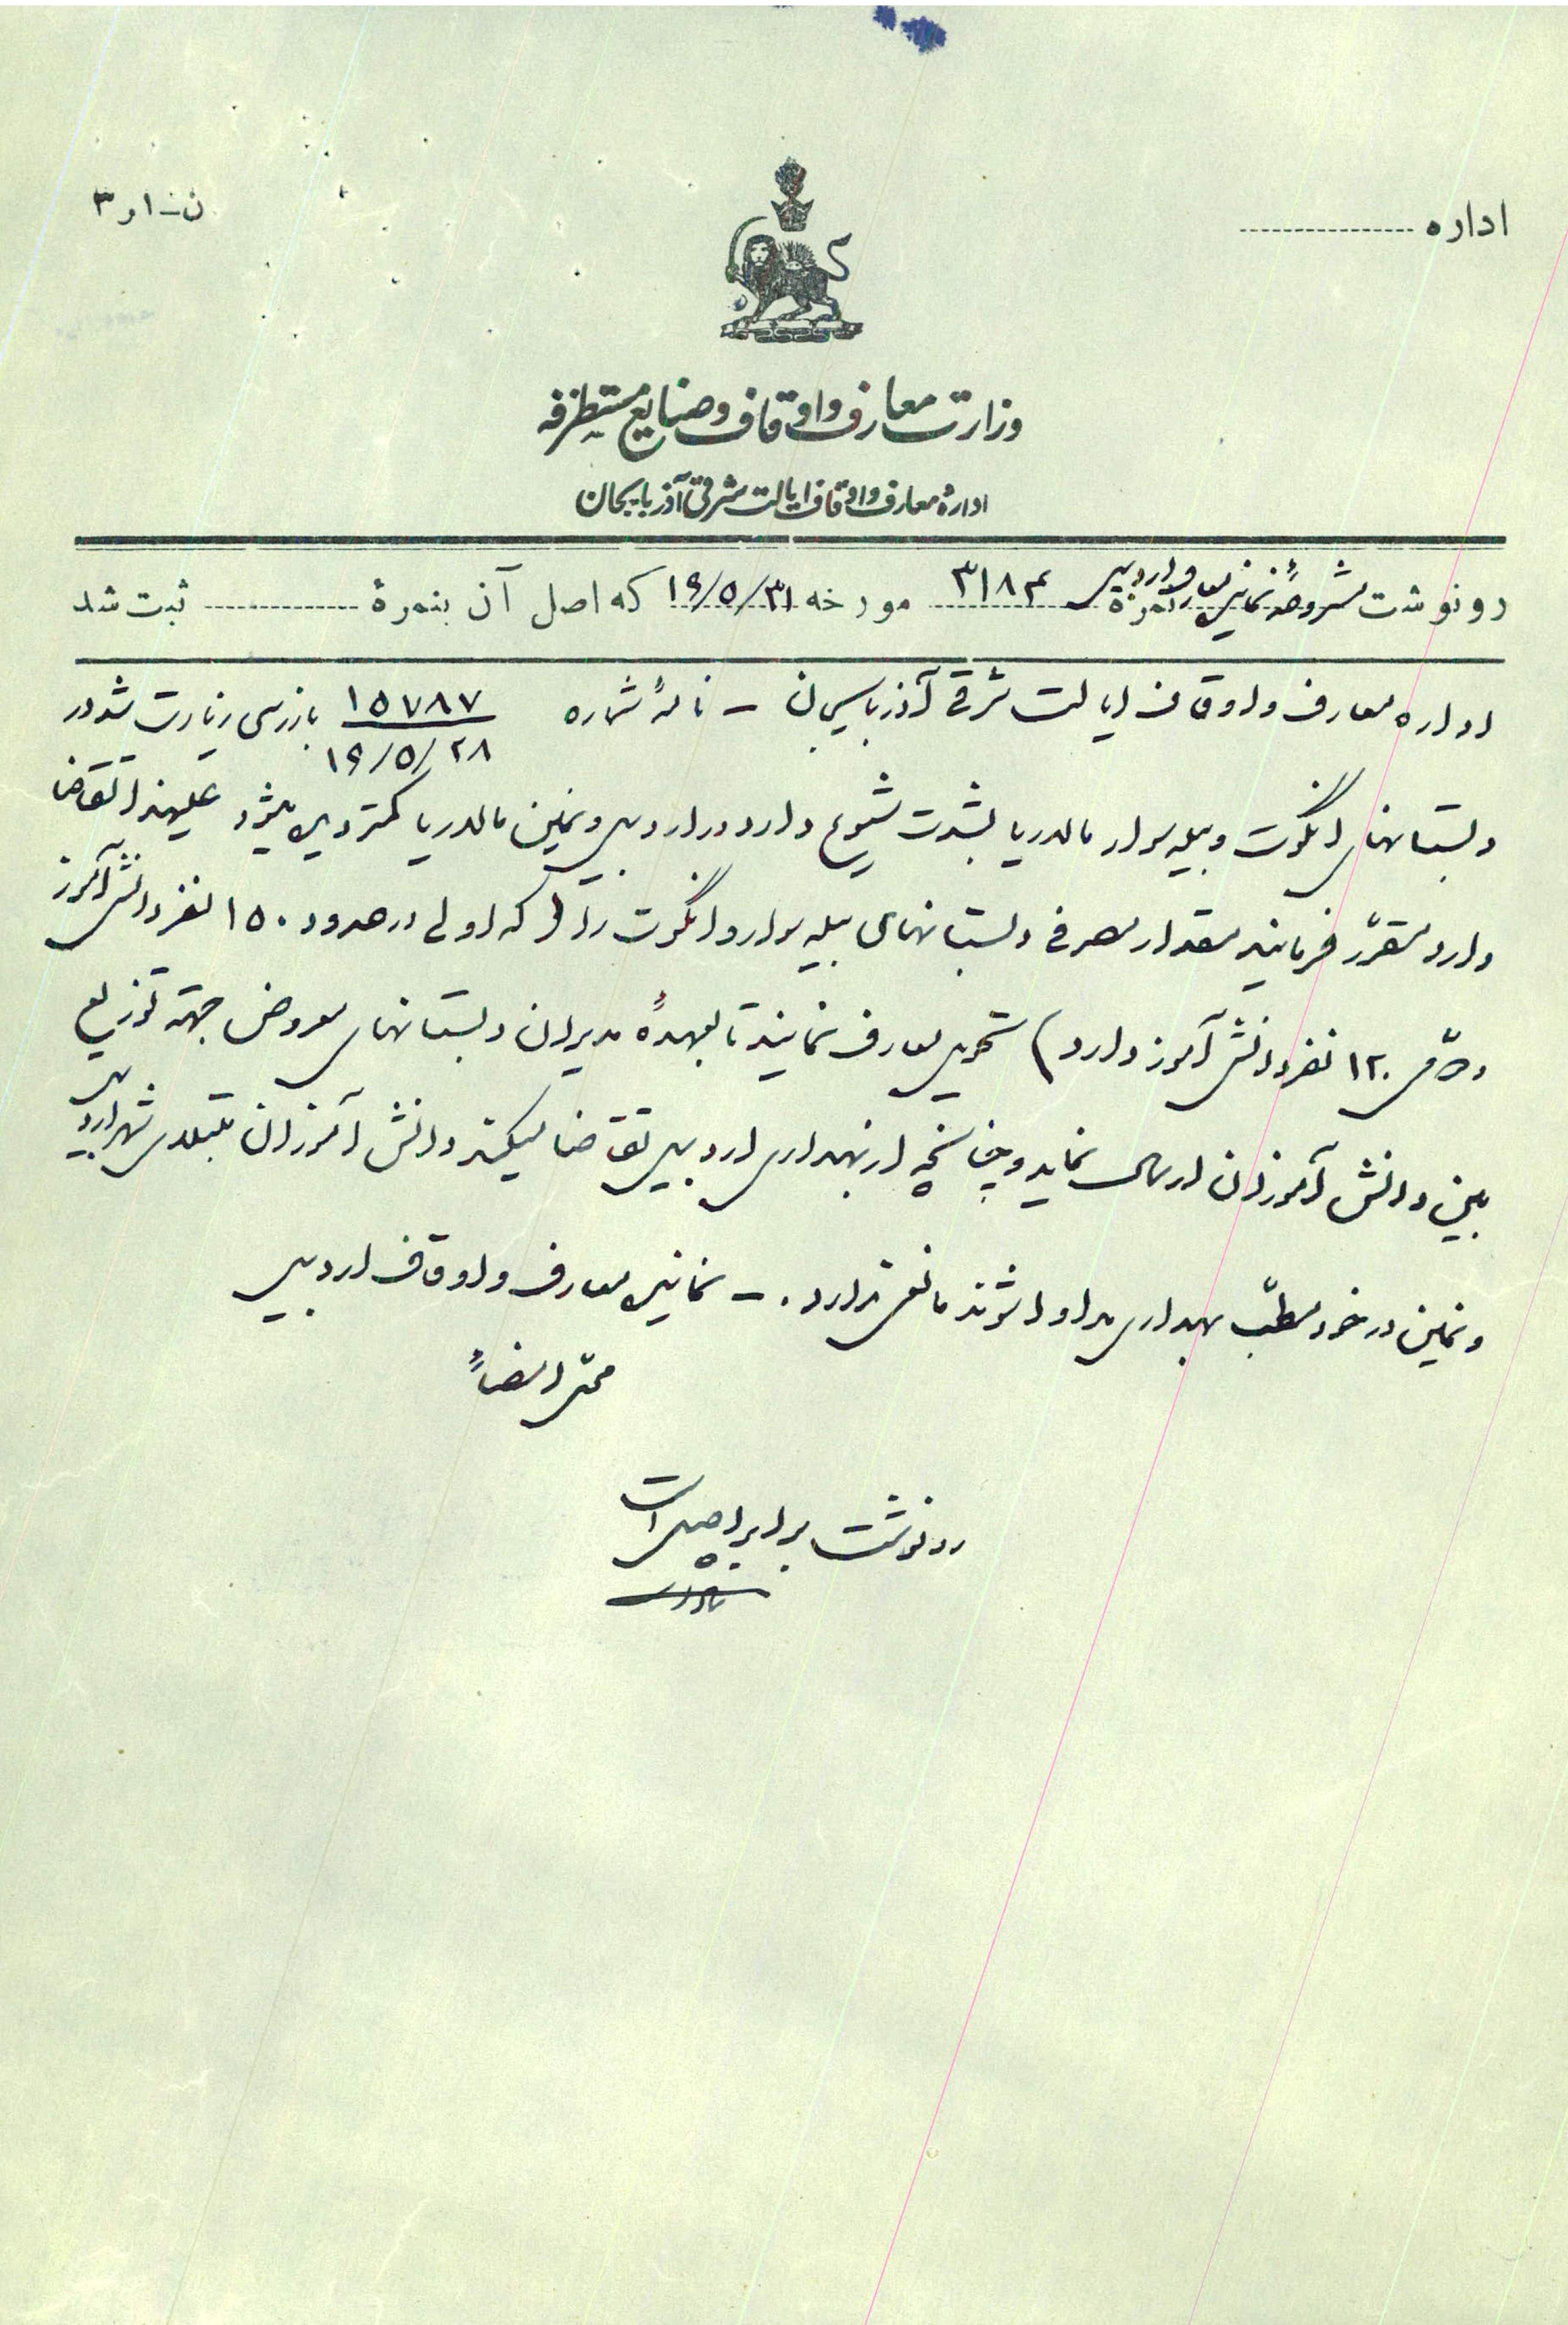 اداره
ن-۱ر۳
وزارت معارف و اوقاف و صنایع مستظرفه
اداره معارف و اوقاف ایالت شرقی آذربایجان
رونوشت مشروحهٔ نمایندگی معارف اردبیل نمرهٔ ۳۱۸۳ مورخه ۱۶/۵/۳۱ که اصل آن بنمرهٔ ثبت شد
اداره معارف و اوقاف ایالت شرقی آذربایجان – نامهٔ شماره ۱۵۷۸۷ بازرسی زیارت شد در
۱۶/۵/۲۸
دبستانهای انگوت و بیله سوار مالاریا بشدت شیوع دارد در اردبیل و نمین مالاریا کمتر دیده میشود علیهذا تقاضا
دارد مقرر فرمایند مقدار مصرفی دبستانهای بیله سوار و انگوت را (که اولی در حدود ۱۵۰ نفر دانش آموز
دومی ۱۲۰ نفر دانش آموز دارد) تحویل معارف نمایند تا بعهدهٔ مدیران دبستانهای معروض جهة توزیع
بین دانش آموزان ارسال نماید و چنانچه از بهداری اردبیل تقاضا میکند دانش آموزان مبتلای شهر اردبیل
و نمین در خود مطب بهداری مداوا شوند مانعی ندارد. – نماینده معارف و اوقاف اردبیل
محل امضاء
رونوشت برابر اصل است